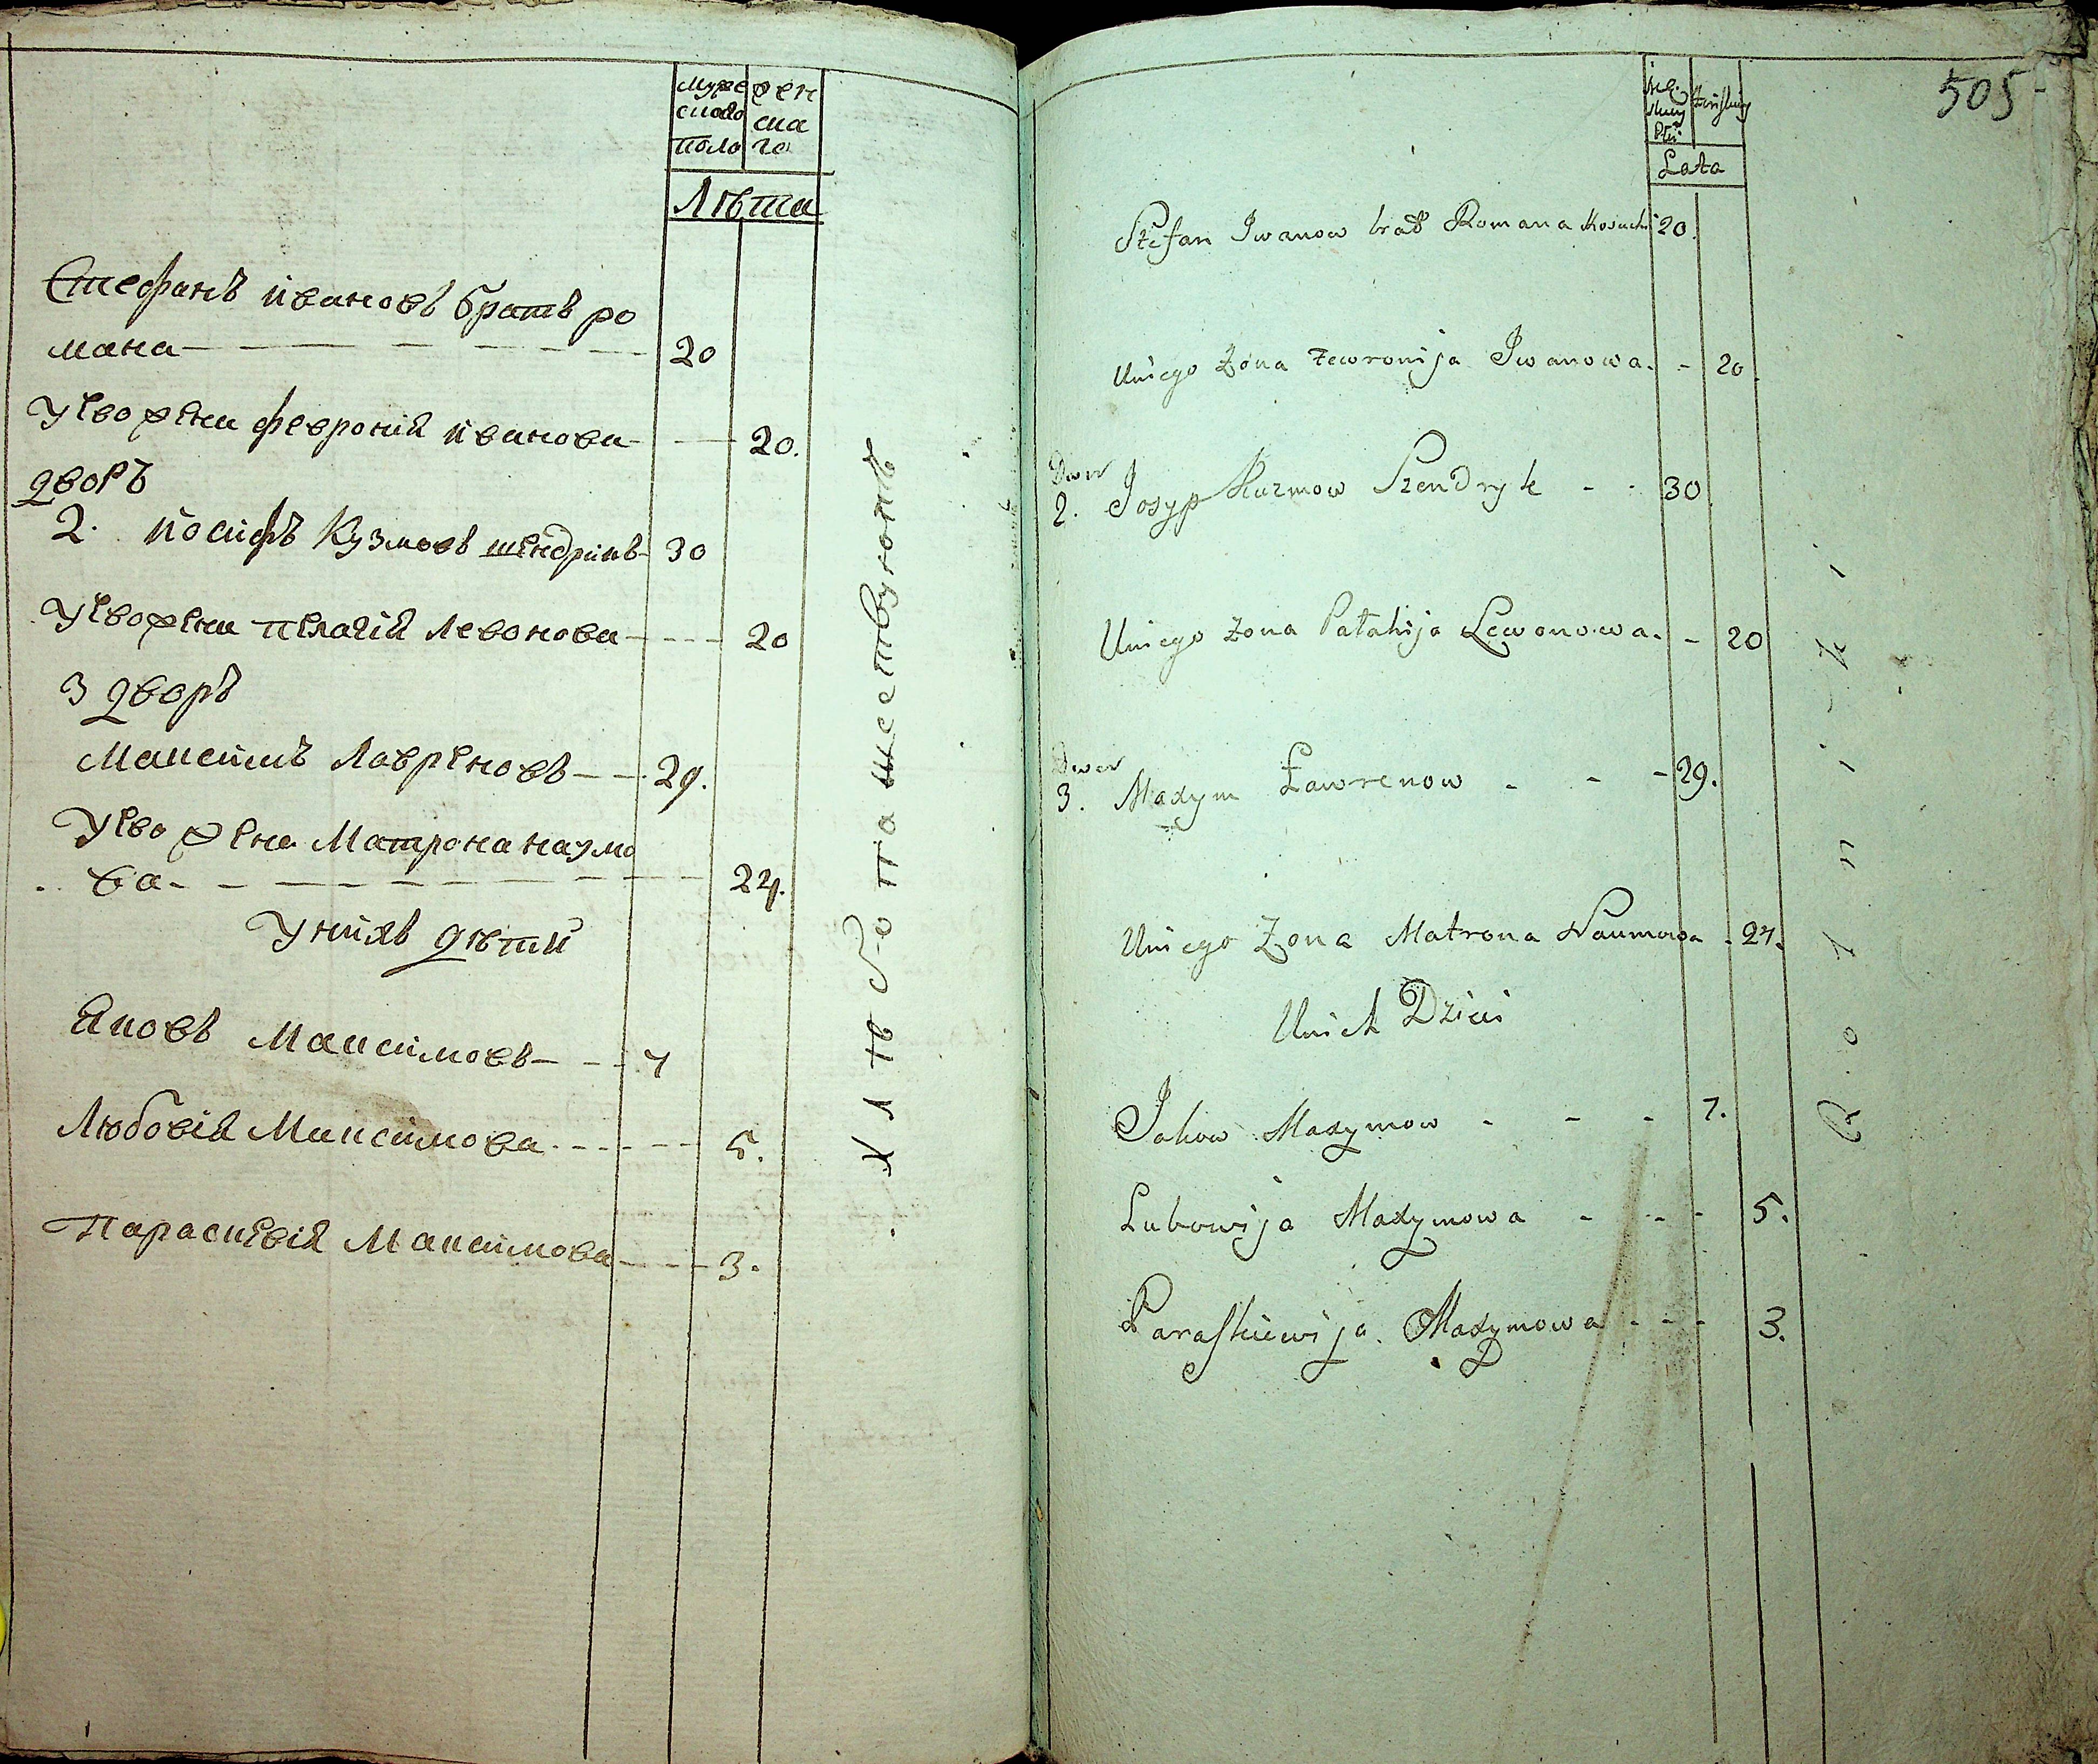 муже
ского
пола
жен
ска
го
Лѣта
Стефанъ ивановъ братъ ро
мана 20
У его жена феврониѧ иванова 20.
дворъ
2. иосифъ Кузмовъ шендрикъ 30
У его жена пелагиѧ левонова 20
3 дворъ
Максимъ Лавреновъ 29.
У его жена Матрона наумо
ва 24.
У нихъ дѣти
Яковъ Максимовъ 7
Любовиѧ Максимова 5.
Параскевиѧ Максимова 3.
Хлѣбопашествуютъ
505
Lata
Stefan Iwanow brat Romana 20.
Uniego Żona Fewronija Iwanowa. - 20.
Dwor
2. Josyp Kuzmow Szendryk - - 30
Uniego Żona Pałahija Lewonowa. - 20
Dwor
3. Maxym Ławrenow - - - 29.
Uniego Żona Matrona Naumowa . 24.
Unich Dzieci
Jakow Maxymow - - - 7.
Lubowija Maxymowa - - - 5.
Paraskiewija Maxymowa - - - 3.
Rolniki